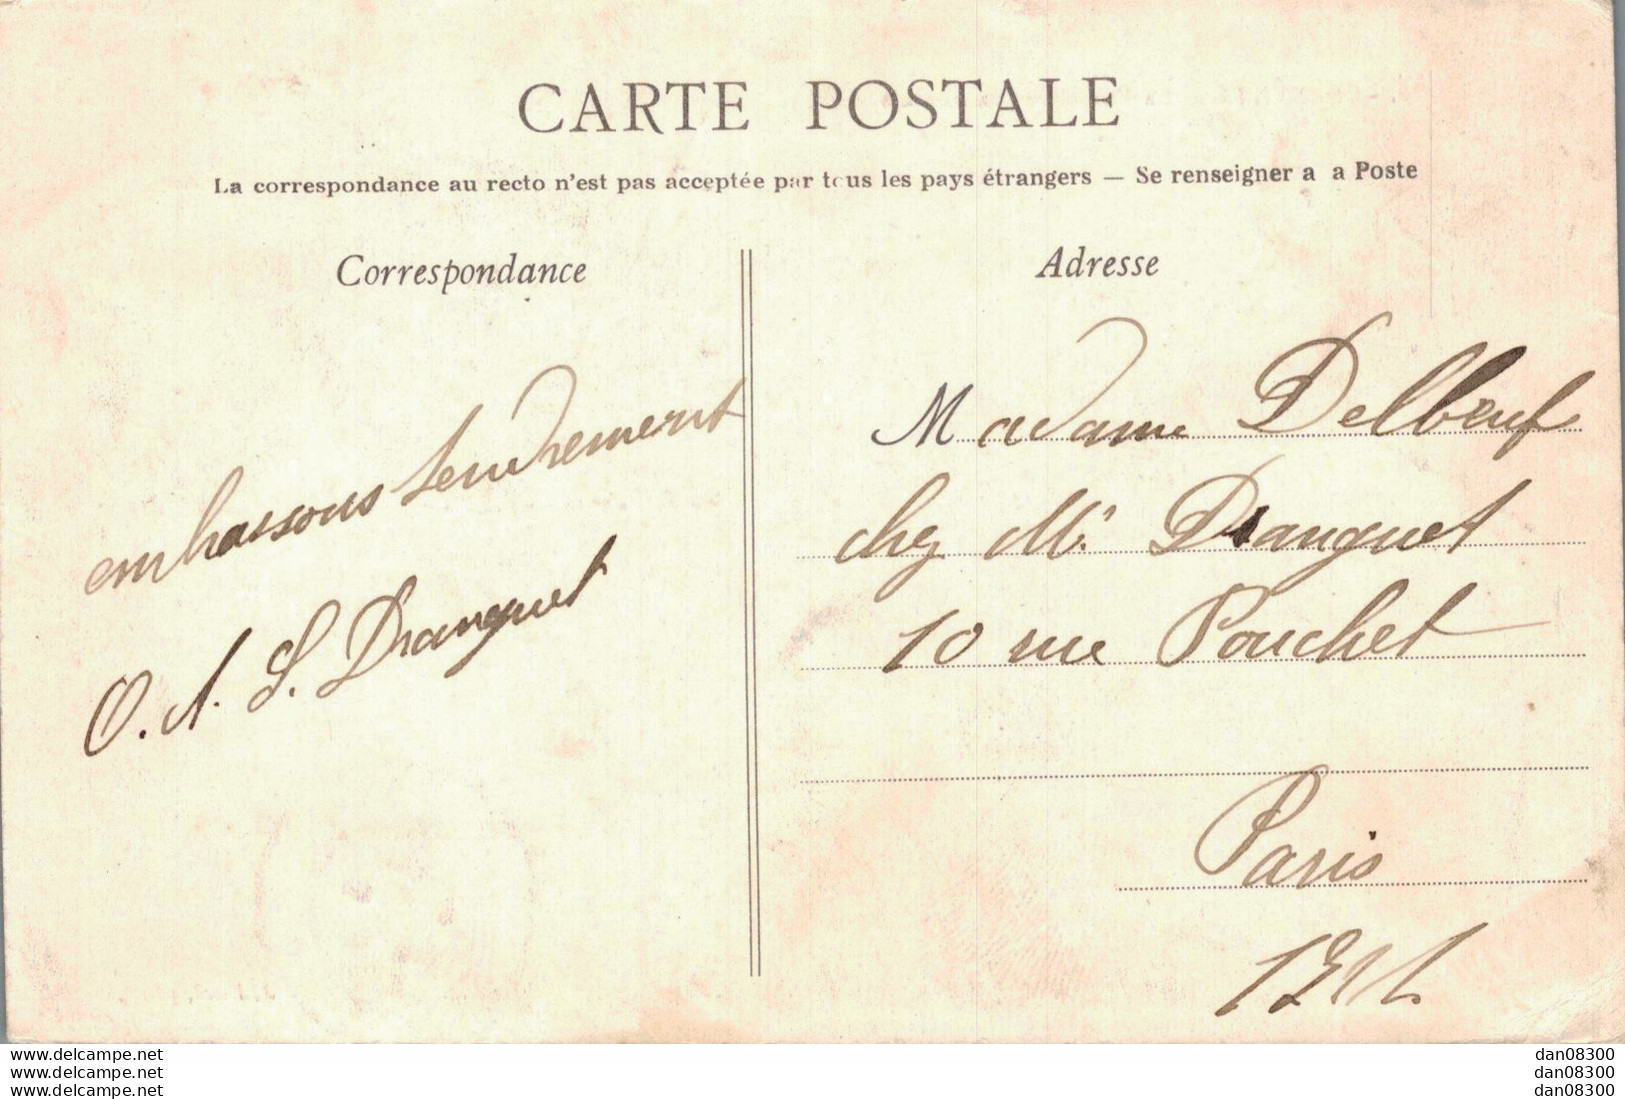 CARTE POSTALE
La correspondance au recto n'est pas acceptée par tous les pays étrangers — Se renseigner a a Poste
Correspondance
embrassons tendrement
O. A. S. Dranguet
Adresse
Madame Delbeuf
chez Mr Dranguet
10 rue Pouchet
Paris
www.delcampe.net
www.delcampe.net
www.delcampe.net
dan08300
dan08300
dan08300